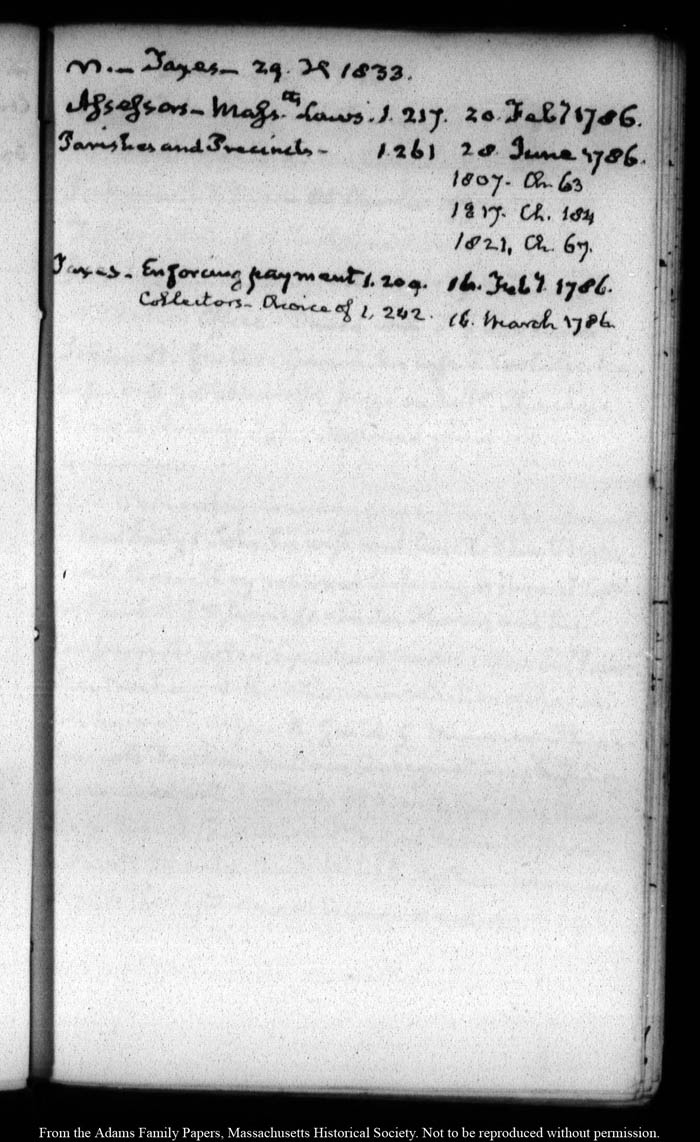 Taxes – 29. 1833.
Assessors – Masstts Laws. 1. 217. 20. Feby 1786.
Parishes and Precincts – 1.261 28. June 1786.
1807. Ch. 63
1817. Ch. 184
1821, Ch. 67.
Taxes – Enforcing payment 1. 209. 16. Feby. 1786.
Collectors – Choice of 1, 242. 16. March 1786.
From the Adams Family Papers, Massachusetts Historical Society. Not to be reproduced without permission.